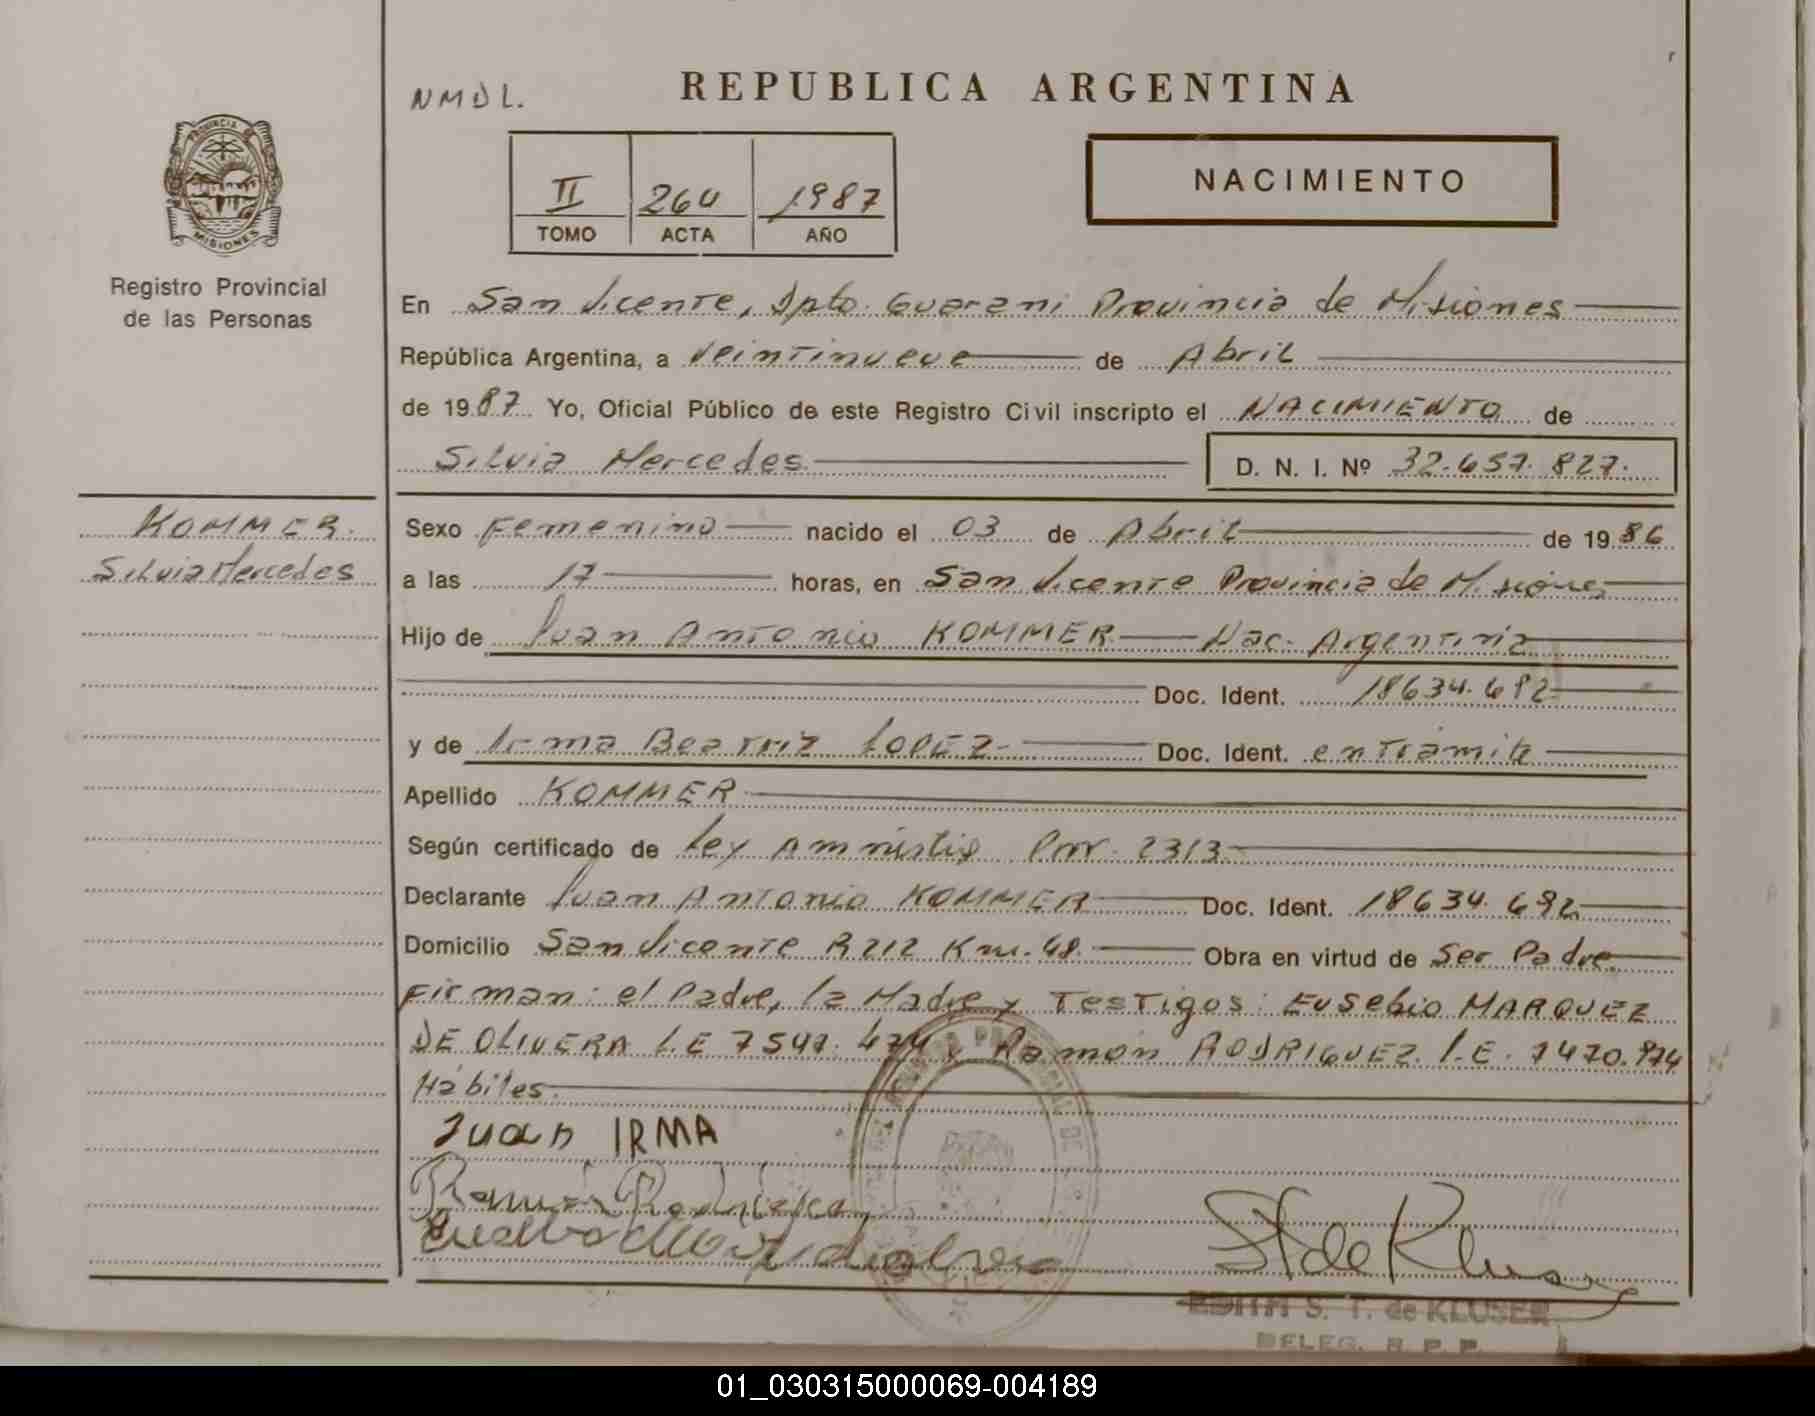 NMDL.
REPUBLICA ARGENTINA
PROVINCIA DE
MISIONES
Registro Provincial
de las Personas
II 264 1987
TOMO ACTA AÑO
NACIMIENTO
En San Vicente, Dpto. Guarani Provincia de Misiones
República Argentina, a Veintinueve de Abril
de 1987 Yo, Oficial Público de este Registro Civil inscripto el NACIMIENTO de
Silvia Mercedes D. N. I. Nº 32.657.827.
KOMMER.
Silvia Mercedes
Sexo Femenino nacido el 03 de Abril de 1986
a las 17 horas, en San Vicente Provincia de Misiones
Hijo de Juan Antonio KOMMER Nac. Argentina
Doc. Ident. 18634.692
y de Irma Beatriz LOPEZ Doc. Ident. en Tramite
Apellido KOMMER
Según certificado de Ley Amnistia Prov. 2313
Declarante Juan Antonio KOMMER Doc. Ident. 18634.692
Domicilio San Vicente R 212 Km. 48. Obra en virtud de Ser Padre
Firman: el Padre, la Madre y Testigos: Eusebio MARQUEZ
DE OLIVERA L.E 7547.474 y Ramón RODRIGUEZ L.E. 7470.974
Hábiles.
Juan IRMA
Ramon Rodriguez
S T de Kluser
EDITH S. T. de KLUSER
DELEG. R. P. P.
01_030315000069-004189